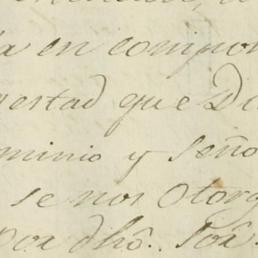 a en compor
estad que D
minio y Seño
se nos Otorg
Por dhô. Soâ.